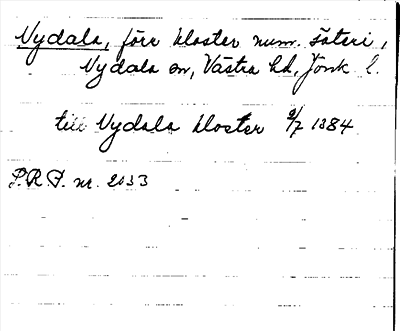 Nydala, förr kloster num. säteri,
Nydala sn, Västra hd, Jönk. l.
till Nydala kloster 9/7 1384
S.R.P. nr. 2033